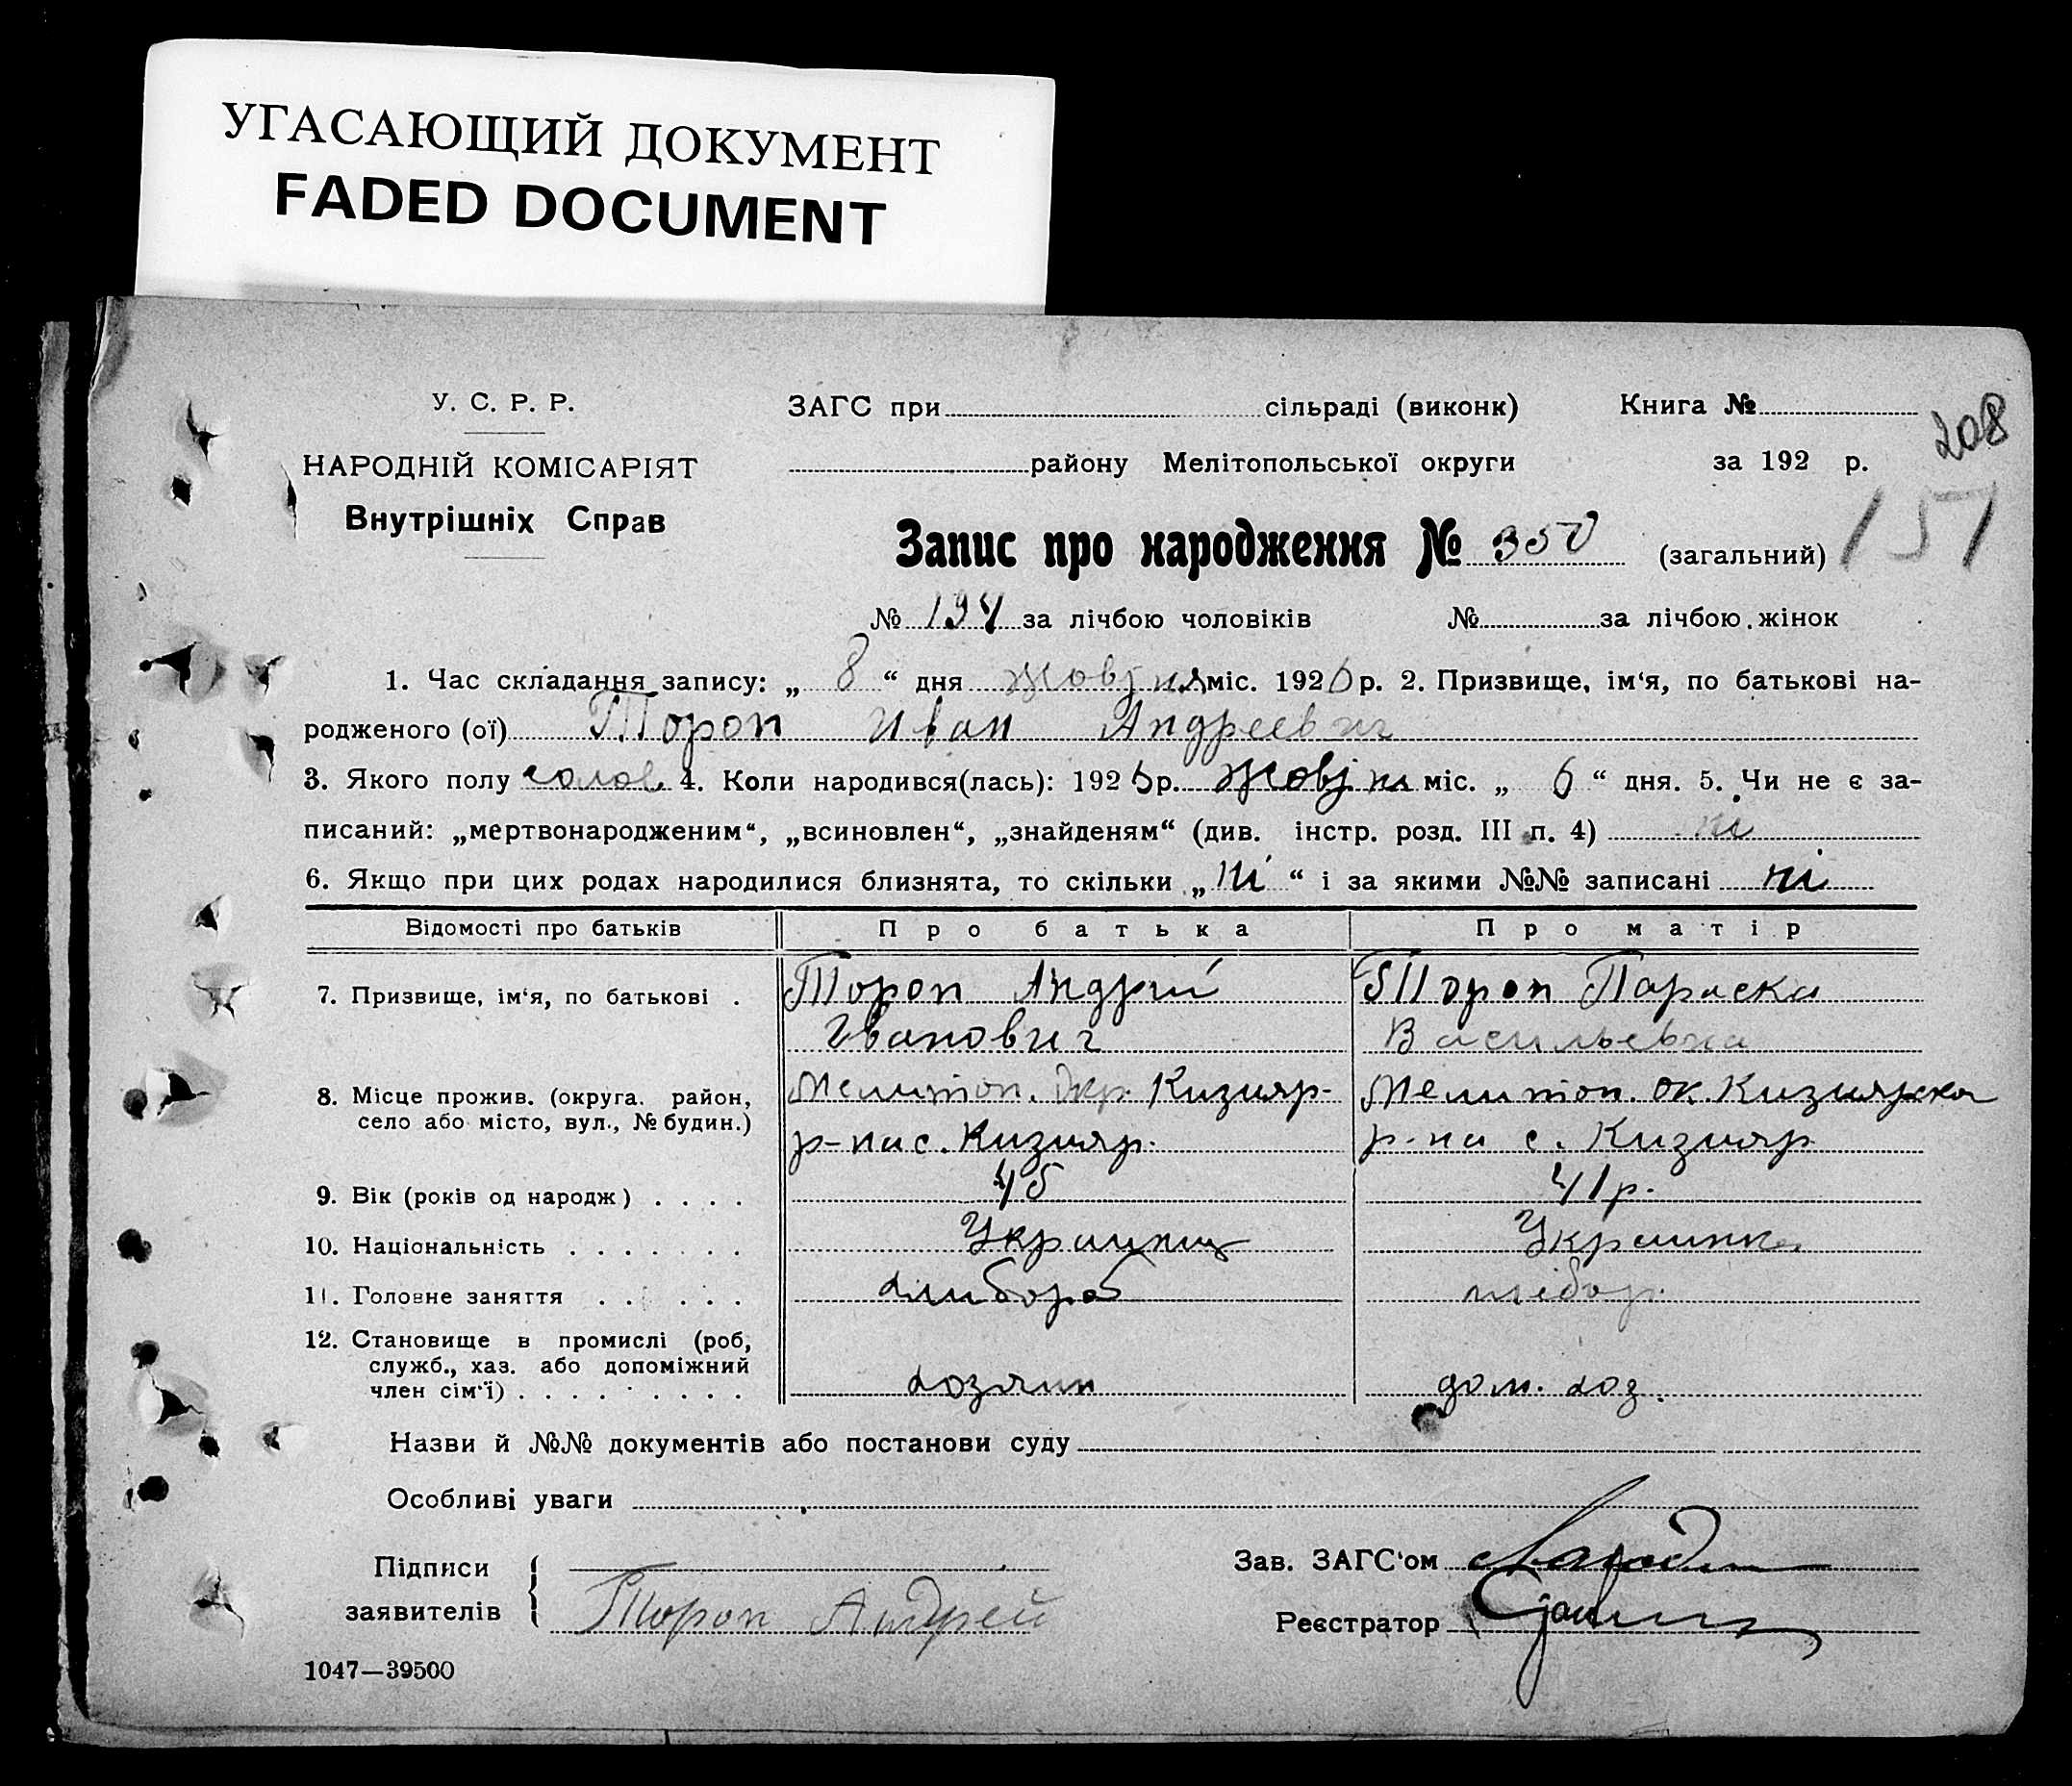 УГАСАЮЩИЙ ДОКУМЕНТ
FADED DOCUMENT
У. С. Р. Р.
НАРОДНІЙ КОМІСАРІЯТ
Внутрішніх Справ
ЗАГС при сільраді (виконк)
Книга №
208
району Мелітопольської округи
за 192 р.
157
Запис про народження № 350 (загальний)
№ 194 за лічбою чоловіків № за лічбою жінок
1. Час складання запису: „ 8 “ дня жовтня міс. 1926 р. 2. Призвище, ім‘я, по батькові на-
родженого (ої) Тороп Иван Андреевич
3. Якого полу чолов. 4. Коли народився(лась): 1926 р. жовтня міс. „ 6 “ дня. 5. Чи не є за-
писаний: „мертвонародженим“, „всиновлен“, „знайденям“ (див. інстр. розд. III п. 4) ні
6. Якщо при цих родах народилися близнята, то скільки „ ні “ і за якими №№ записані ні
Відомості про батьків Про батька Про матір
7. Призвище, ім‘я, по батькові . Тороп Андрій Тороп Параска
Іванович Васильевна
8. Місце прожив. (округа. район, Мелитоп. окр. Кизияр- Мелитоп. ок. Кизиярска
село або місто, вул., № будин.) р-на с. Кизияр. р-на с. Кизияр
9. Вік (років од народж) . . . . 45 41 р.
10. Національність . . . . . . . Украинец Украинка
11. Головне заняття . . . . . . хлибороб хлібор.
12. Становище в промислі (роб,
служб., хаз. або допоміжний
член сім‘ї) . . . . . . . . . хозяин дом. хоз.
Назви й №№ документів або постанови суду
Особливі уваги
Підписи
заявителів
Тороп Андрей
Зав. ЗАГС‘ом
Реєстратор
1047—39500